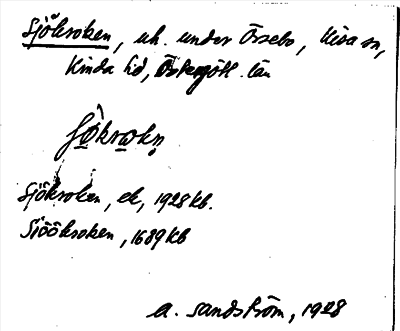 Sjökroken, uh. under Örsebo, Kisa sn,
Kinda hd, Östergötl. län
Sjökroken, ek, 1928 kb.
Siöökroken, 1689 kb
A. Sandström, 1928